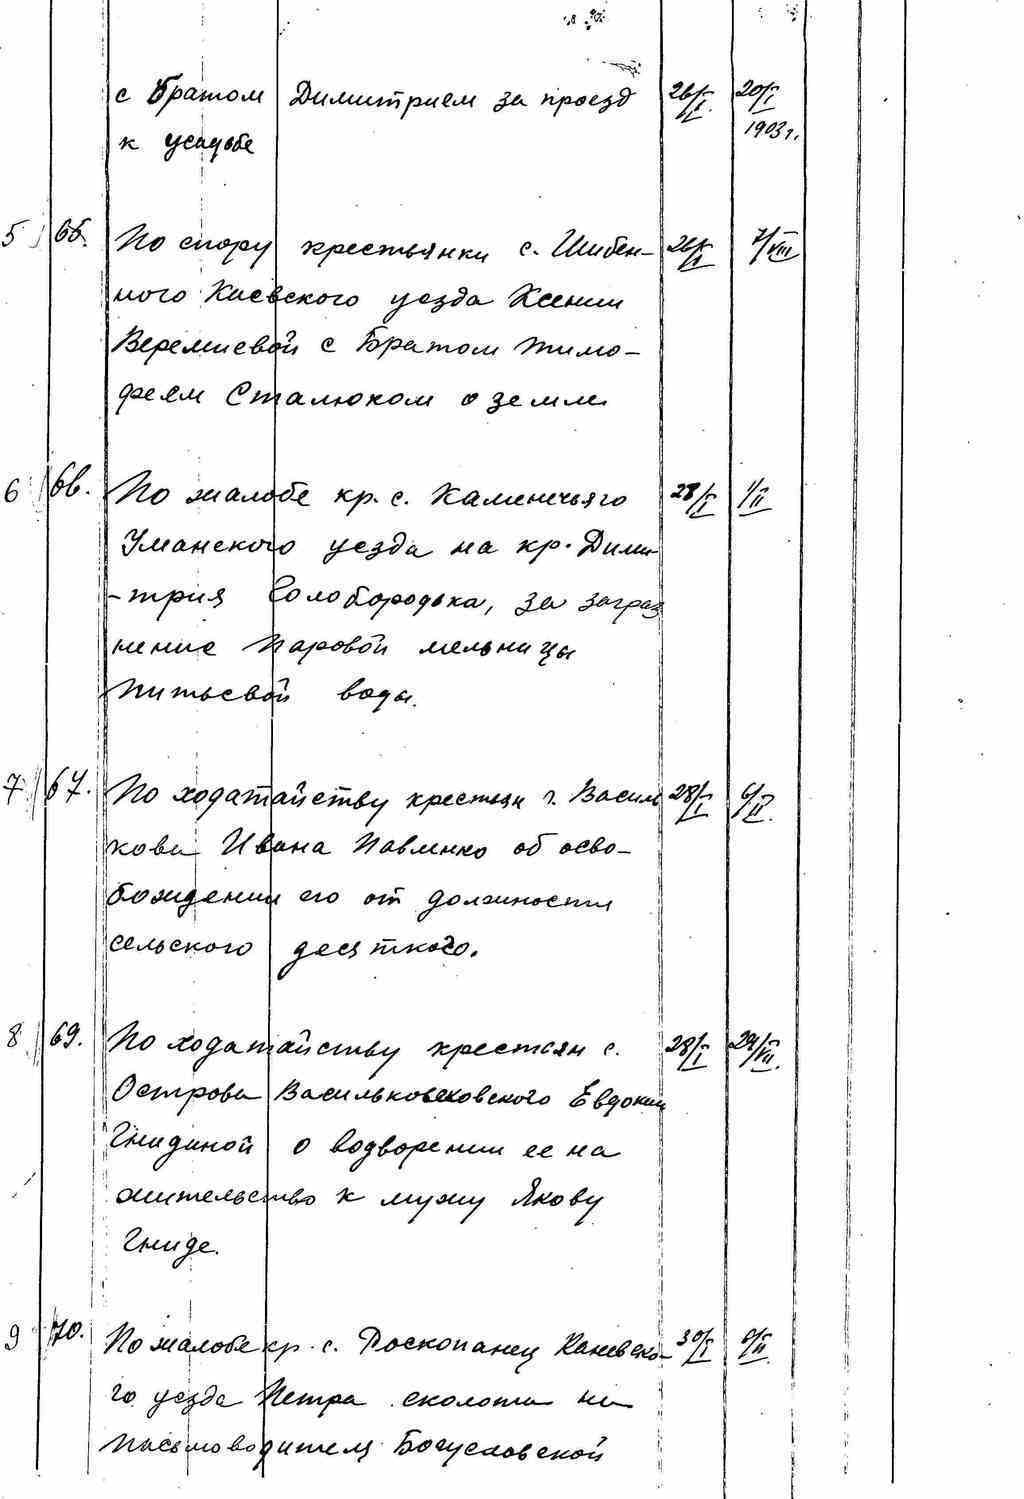 с братом Димитрием за проезд 26/I 20/I
к усадьбе 1903 г.
5 65. По спору крестьянки с. Шибен- 26/I 7/VIII
ного Киевского уезда Ксении
Веремиевой с братом Тимо-
феем Сталюком о земле
6 66. По жалобе кр. с. Каменечьяго 28/I 1/II
Уманского уезда на кр. Дими-
-трия Голобородька, за загряз
нение паровой мельницы
питьевой воды.
7 67. По ходатайству крестьян г. Василь 28/I 6/II
кова Ивана Павленко об осво-
бождении его от должности
сельского десятского.
8 69. По ходатайству крестьян с. 28/I 29/VII.
Острова Васильковсковского Евдокии
Гнидиной о водворении ее на
жительство к мужу Якову
Гниде.
9 70. По жалобе кр. с. Роскопанец Каневско- 30/I 6/II
го уезда Петра Сколота на
письмоводителя Богуславской